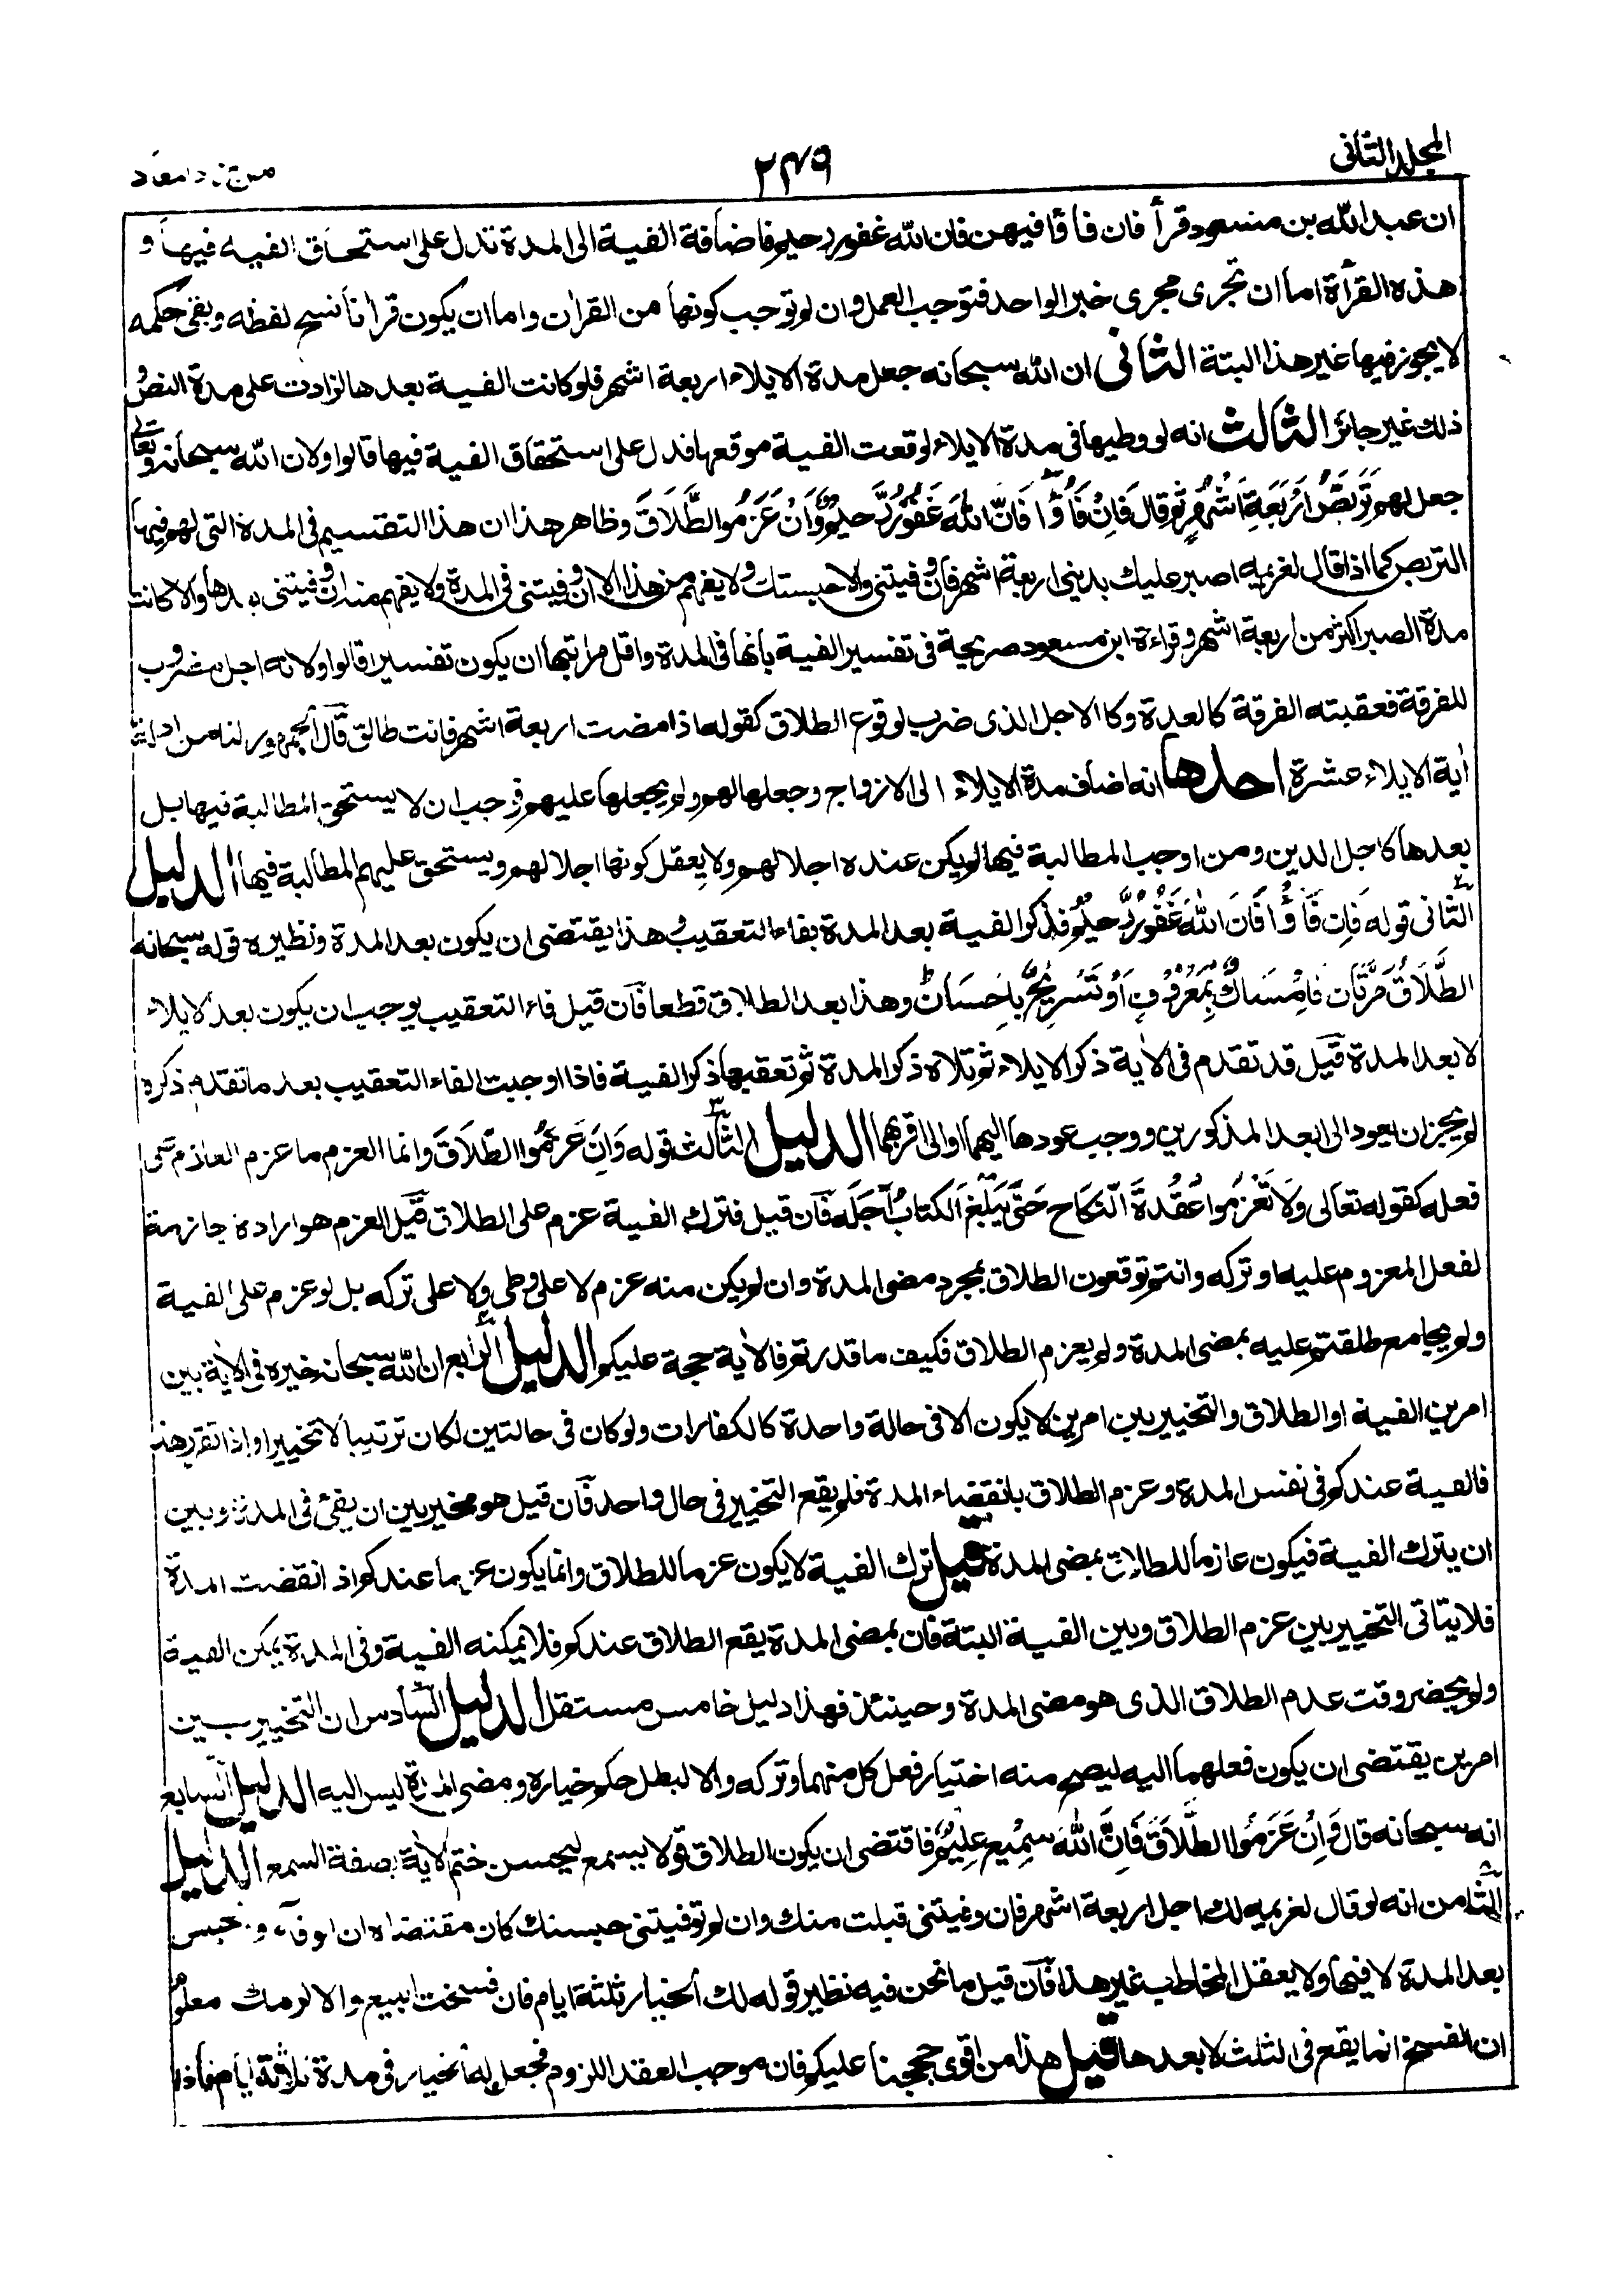 المجلد الثانی
۲۴۹
من زاد معاد
ان عبد الله بن مسعود قرأ فان فاؤا فيهن فان الله غفور رحيم فاضافة الفية الى المدة تدل على استحقاق الفيه فيها و
هذه القرأة اما ان تجرى مجرى خبر الواحد فتوجب العمل وان لم توجب كونها من القران واما ان يكون قرأنا نسخ لفظه وبقى حكمه
لا يجوز فيها غير هذا البتة الثانى ان الله سبحانه جعل مدة الايلاء اربعة اشهر فلو كانت الفية بعدها لزادت على مدة النص و
ذلك غير جائز الثالث انه لو وطيها فى مدة الايلاء لوقعت الفية موقعها فدل على استحقاق الفية فيها قالوا ولان الله سبحانه وتعالى
جعل لهم تَرَبُّصُ اَرْبَعَةِ اَشْهُرٍ ثم قال فَاِنْ فَاؤُا فَاِنَّ اللهَ غَفُوْرٌ رَّحِيْمٌ وَاِنْ عَزَمُوا الطَّلَاقَ وظاهر هذا ان هذا التقسيم فى المدة التى لهم فيها
التربص كما اذا قال لغريمه اصبر عليك بدينى اربعة اشهر فان وفيتنى والا حبستك ولا يفهم من هذا الا ان وفيتنى فى المدة ولا يفهم منه ان وفيتنى بعدها والا كانت
مدة الصبر اكثر من اربعة اشهر وقراءة ابن مسعود صريحة فى تفسير الفية بانها فى المدة واقل مراتبها ان يكون تفسيرا قالوا ولانه اجل مضروب
للفرقة فعقبته الفرقة كالعدة وكالاجل الذى ضرب لوقوع الطلاق كقوله اذا مضت اربعة اشهر فانت طالق قال الجمهور لنا من
أية الايلاء عشرة احدها انه اضاف مدة الايلاء الى الازواج وجعلها لهم ولم يجعلها عليهم فوجب ان لا يستحق المطالبة فيها بل
بعدها كاجل الدين ومن اوجب المطالبة فيها لم يكن عنده اجلا لهم ولا يعقل كونها اجلا لهم ويستحق عليهم المطالبة فيها الدليل
الثانى قوله فَاِنْ فَاؤُا فَاِنَّ اللهَ غَفُوْرٌ رَّحِيْمٌ فذكر الفية بعد المدة بفاء التعقيب وهذا يقتضى ان يكون بعد المدة ونظيره قوله سبحانه
الطَّلَاقُ مَرَّتَانِ فَاِمْسَاكٌ بِمَعْرُوْفٍ اَوْ تَسْرِيْحٌ بِاِحْسَانٍ وهذا بعد الطلاق قطعا فان قيل فاء التعقيب يوجب ان يكون بعد الايلاء
لا بعد المدة قيل قد تقدم فى الأية ذكر الايلاء ثم تلاه ذكر المدة ثم تعقبها ذكر الفية فاذا اوجبت الفاء التعقيب بعد ما تقدم ذكره
لم يجز ان يعود الى ابعد المذكورين ووجب عودها اليهما او الى اقربهما الدليل الثالث قوله وَاِنْ عَزَمُوا الطَّلَاقَ وانما العزم ما عزم العازم على
فعله كقوله تعالى وَلَا تَعْزِمُوا عُقْدَةَ النِّكَاحِ حَتَّى يَبْلُغَ الْكِتَابُ اَجَلَهُ فان قيل فترك الفية عزم على الطلاق قيل العزم هو ارادة جازمة
لفعل المعزوم عليه او تركه وانتم توقعون الطلاق بمجرد مضى المدة وان لم يكن منه عزم لا على وطى ولا على تركه بل لو عزم على الفية
ولم يجامع طلقتم عليه بمضى المدة ولم يعزم الطلاق فكيف ما قدرتم فالأية حجة عليكم الدليل الرابع ان الله سبحانه خيره فى الأية بين
امرين الفية او الطلاق والتخيير بين امرين لا يكون الا فى حالة واحدة كالكفارات ولو كان فى حالتين لكان ترتيبا لا تخييرا واذا تقرر هذا
فالفية عندكم فى نفس المدة وعزم الطلاق بانقضاء المدة فلم يقع التخيير فى حال واحد فان قيل هو مخير بين ان يفئ فى المدة وبين
ان يترك الفية فيكون عازما للطلاق بمضى المدة قيل ترك الفية لا يكون عزما للطلاق وانما يكون عزما عندكم اذ انقضت المدة
فلا يتاتى التخيير بين عزم الطلاق وبين الفية البتة فان بمضى المدة يقع الطلاق عندكم فلا يمكنه الفية وفى المدة يمكن الفية
ولم يحضر وقت عدم الطلاق الذى هو مضى المدة وحينئذ فهذا دليل خامس مستقل الدليل السادس ان التخيير بين
امرين يقتضى ان يكون فعلهما اليه ليصح منه اختيار فعل كل منهما وتركه والا لبطل حكم خياره ومضى المدة ليس اليه الدليل السابع
انه سبحانه قال وَاِنْ عَزَمُوا الطَّلَاقَ فَاِنَّ اللهَ سَمِيْعٌ عَلِيْمٌ فاقتضى ان يكون الطلاق قولا يسمع ليحسن ختم الأية بصفة السمع الدليل
الثامن انه لو قال لغريمه لك اجل اربعة اشهر فان وفيتنى قبلت منك وان لم توفيتنى حبستك كان مقتضاه ان الوفاء والحبس
بعد المدة لا فيها ولا يعقل المخاطب غير هذا فان قيل ما نحن فيه نظير قوله لك الخيار ثلثة ايام فان فسخت البيع والا لزمك معلوم
ان الفسخ انما يقع فى الثلث لا بعدها قيل هذا من اقوى حججنا عليكم فان موجب العقد اللزوم فجعل له الخيار فى مدة ثلاثة ايام فاذا